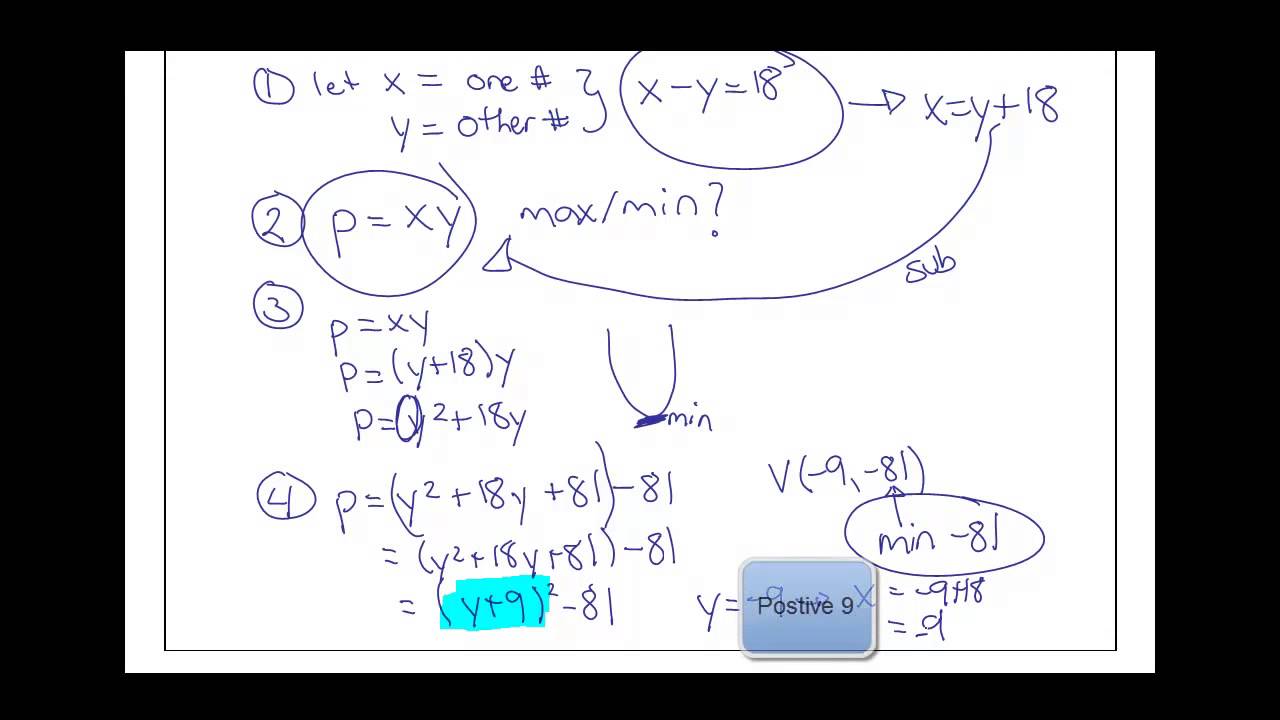 ① let x = one # } x - y = 18 → x = y + 18
y = other #
② p = xy max/min?
sub
③ p = xy
p = (y+18)y
p = y² + 18y
min
④ p = (y² + 18y + 81) - 81
V(-9, -81)
= (y² + 18y + 81) - 81
min -81
= (y+9)² - 81
y = -9 → x = -9+18
Postive 9
= -9